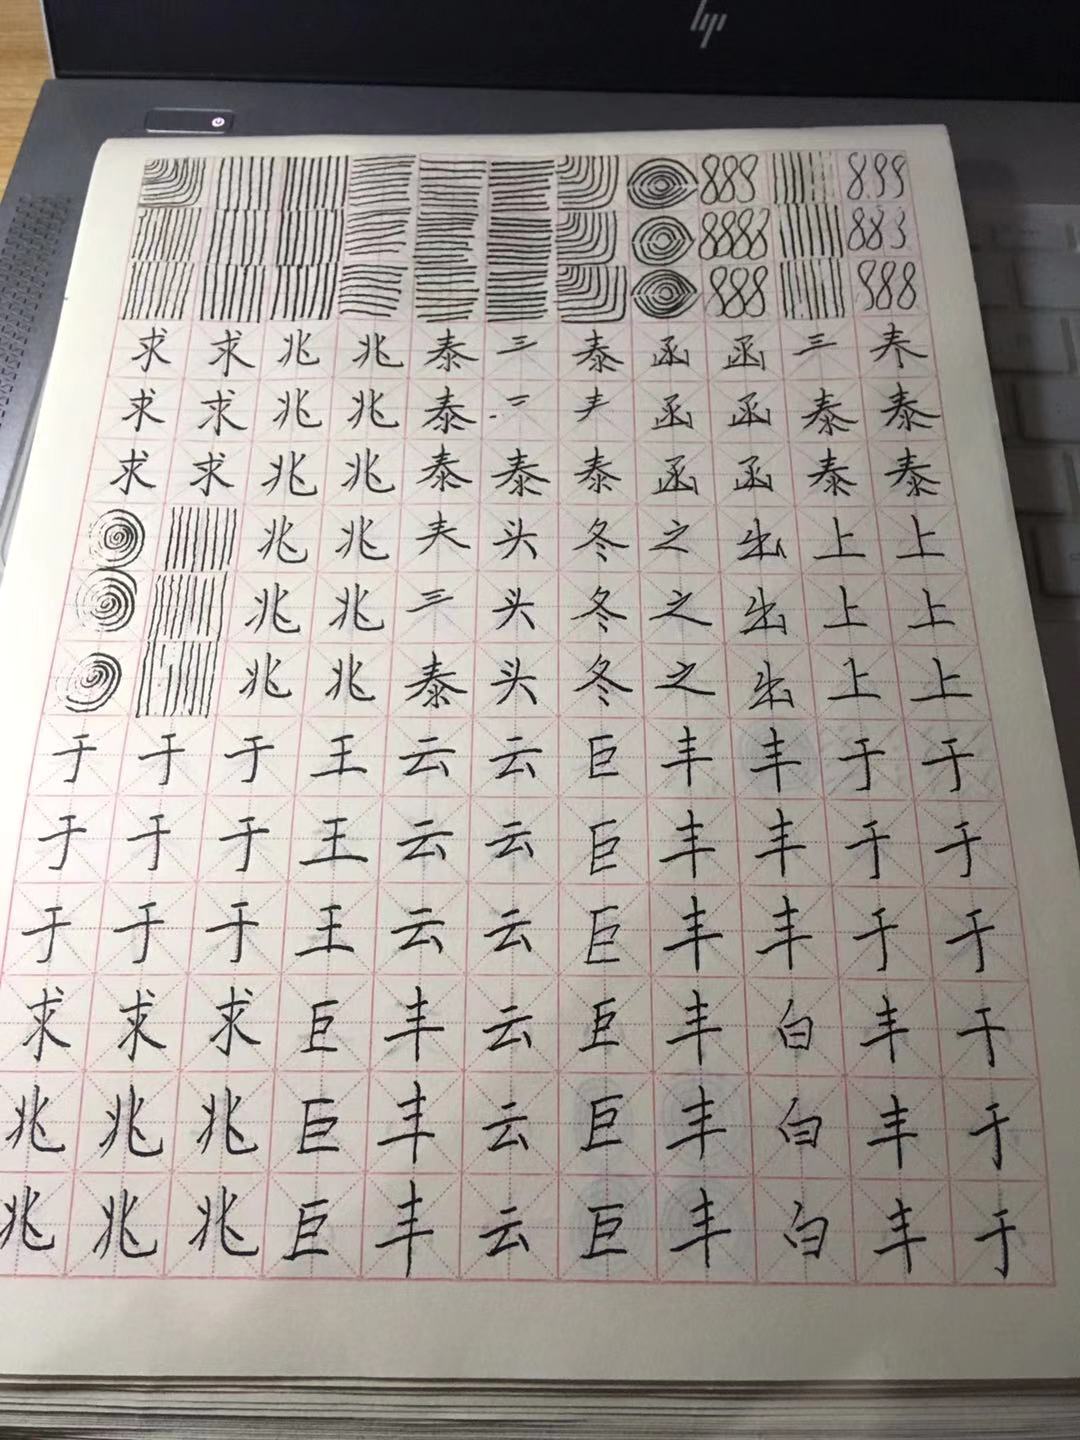 hp
888 8.99
8888 883
888 888
求 求 兆 兆 泰 三 泰 函 函 三 𡗗
求 求 兆 兆 泰 二 𡗗 函 函 泰 泰
求 求 兆 兆 泰 泰 泰 函 函 泰 泰
兆 兆 𡗗 头 冬 之 出 上 上
兆 兆 三 头 冬 之 出 上 上
兆 兆 泰 头 冬 之 出 上 上
于 于 于 王 云 云 巨 丰 丰 于 于
于 于 于 王 云 云 巨 丰 丰 于 于
于 于 于 王 云 云 巨 丰 丰 于 于
求 求 求 巨 丰 云 巨 丰 白 丰 干
兆 兆 兆 巨 丰 云 巨 丰 白 丰 于
兆 兆 兆 巨 丰 云 巨 丰 白 丰 于